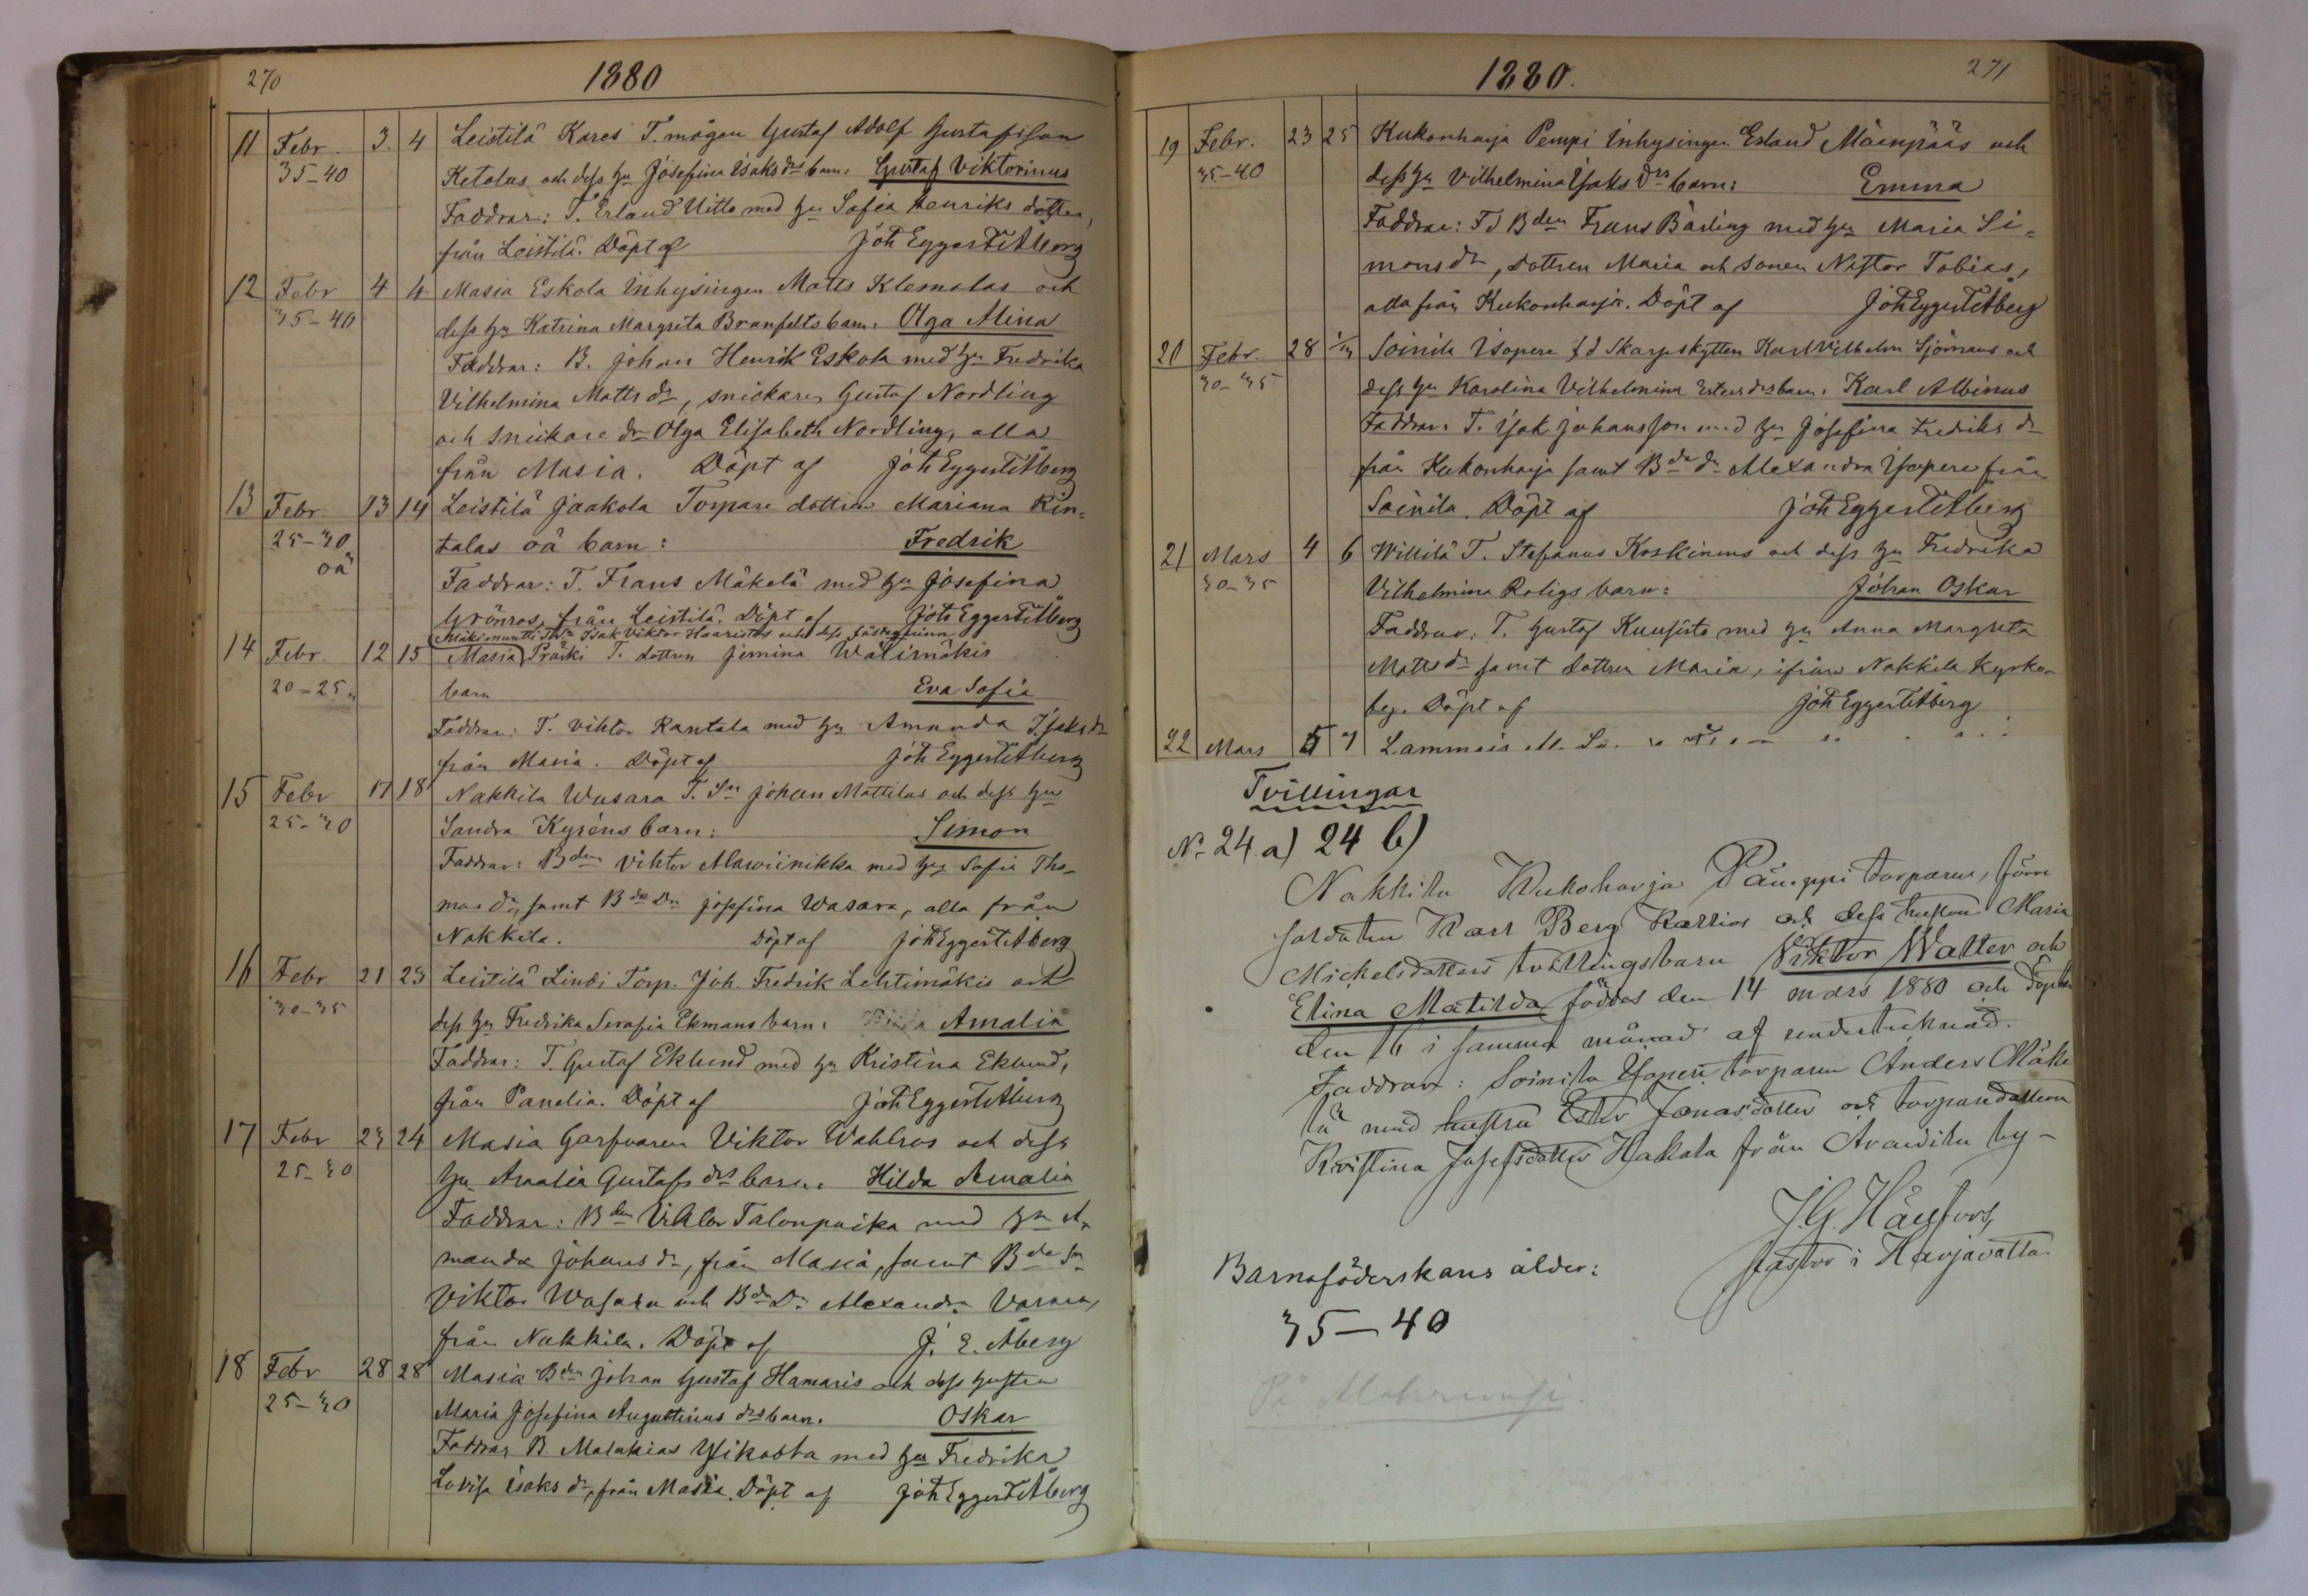 270
1880
11 Febr. 3. 4 Leistilä Kares T. mågen Gustaf Adolf Gustafsson
35-40 Ketolas och dess hu Josefina Isaks drs barn: Gustaf Viktorinus
Faddrar: T. Erland Uitto med hu Sofia Henriks dotter,
från Leistilä. Döpt af Joh Eggert Åberg
12 Febr 4 4 Masia Eskola Inhysingen Matts Klemolas och
35-40 dess hu Katrina Margreta Branfelts barn: Olga Alina
Faddrar: B. Johan Henrik Eskola med hu Fredrika
Vilhelmina Matts dr, snickaren Gustaf Nordling
och Snickare dr Olga Elisabeth Nordling, alla
från Masia. Döpt af Joh Eggert Åberg
13 Febr. 13 14 Leistilä Jaakola Torpare dottren Mariana Rin=
25-30 talas oä barn: Fredrik
oä
Faddrar: T. Frans Mäkelä med hu Josefina
Grönros, från Leistilä. Döpt af Joh Eggert Åberg
Isak Viktor Haaristos och dess fästeqvinna
14 Febr. 12 15 Masia Präski T. dottren Jemina Wälimäkis
20-25 barn Eva Sofia
Faddrar: T. Viktor Rantala med hu Amanda Isaks dr
från Masia. Döpt af Joh Eggert Åberg
15 Febr 17 18 Nakkila Wasara T. Sn Johan Mattilas och dess hu
25-30 Sandra Kyréns barn: Simon
Faddrar: Bden Viktor Alawiinikka med hu Sofia Tho=
mas dr, samt Bde Dn Josefina Wasara, alla från
Nakkila. Döpt af Joh Eggert Åberg
16 Febr 21 23 Leistilä Lindi Torp. Joh. Fredrik Lehtimäkis och
30-35 dess hu Fredrika Serafia Ekmans barn: Amalia
Faddrar: T. Gustaf Eklund med hu Kristina Eklund,
från Panelia. Döpt af Joh Eggert Åberg
17 Febr 23 24 Masia Garfvaren Viktor Wahlros och dess
25-30 hu Amalia Gustafs drs barn: Hilda Amalia
Faddrar: Bden Viktor Talonpoika med hu A=
manda Johans dr, från Masia, samt Bde Sn
Viktor Wasara och Bde Dr Alexandra Vasara,
från Nakkila. Döpt af J. E. Åberg
18 Febr 28 28 Masia Bden Johan Gustaf Hamaris och dess hustru
25-30 Maria Josefina Augustinus drs barn: Oskar
Faddrar B. Malakias Ylikoota med hu Fredrika
Lovisa Isaks dr, från Masia. Döpt af Joh Eggert Åberg
1880.
271
19 Febr. 23 25 Kukonharja Pempi Inhysingen Erland Mäenpääs och
35-40 dess hu Vilhelmina Isaks drs barn: Emma
Faddrar: Bden Frans Bärling med hu Maria Si=
mons dr, dottren Maria och sonen Nestor Tobias,
alla från Kukonharja. Döpt af Joh Eggert Åberg
20 Febr. 28 Soinila Isopere fd Skarpskytten Karl Vilhelm Sjömans och
30-35 dess hu Karolina Vilhelmina drs barn: Karl Albinus
Faddrar: T. Isak Johansson med hu Josefina Fredriks dr
från Kukonharja samt Bde dr Alexandra Isopere från
Soinila. Döpt af Joh Eggert Åberg
21 Mars 4 6 Willilä T. Stefanus Koskinens och dess hu Fredrika
30-35 Vilhelmina Roligs barn: Johan Oskar
Faddrar: T. Gustaf Kuusisto med hu Anna Margreta
Matts dr samt dottren Maria, ifrån Nakkila kyrko-
by. Döpt af Joh Eggert Åberg
22 Mars 5 7 Lammais
Tvillingar
No 24 a) 24 b)
Nakkila Kukoharja Pämppi torparen, förre
soldaten Karl Berg Karrios och dess hustru Maria
Mickelsdotters tvillingsbarn Viktor Walter och
Elina Matilda föddes den 14 mars 1880 och döptes
den 16 i samma månad af undertecknad.
Faddrar: Soinila torparen Anders Mäke
lä med hustru Ester Jonasdotter och torparedottren
Kristina Josefsdotter Hakala från Arantila by-
J.G. Hänfors,
pastor i Harjavalta.
Barnaföderskans ålder:
35-40
På